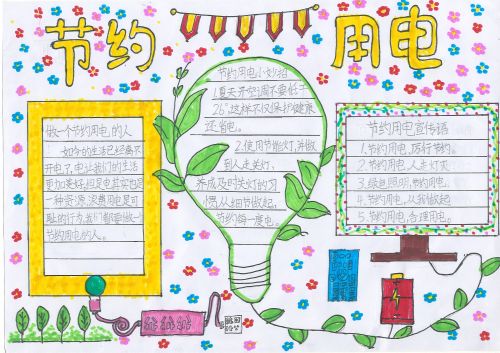 节约 用电
节约用电小妙招
1.夏天开空调不要低于
26°,这样不仅保护健康
还省电。
2.使用节能灯,并做
到人走关灯、
养成及时关灯的习
惯从细节做起,
节约每一度电。
做一个节约用电的人
如今的生活已经离不
开电了,电让我们的生活
更加美好,但是电其实也是
一种资源,浪费用电是可
耻的行为,我们都要做一个
节约用电的人。
节约用电宣传语
1.节约用电,厉行节约。
2.节约用电,人走灯灭
3.绿色照明,节约用电。
4.节约用电,从我做起
5.节约用电,合理用电。